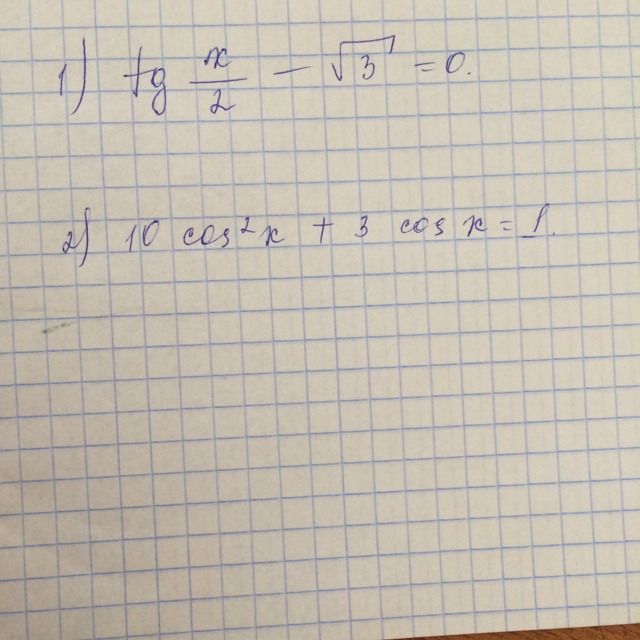 1) tg x/2 - √3 = 0.
2) 10 cos² x + 3 cos x = 1.